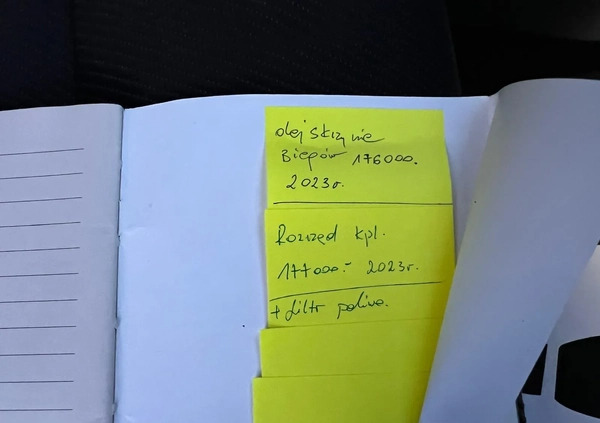 olej skrzynie
Biegów 176000.
2023r.
Rozrząd kpl.
177000.- 2023r.
+ filtr paliwa.